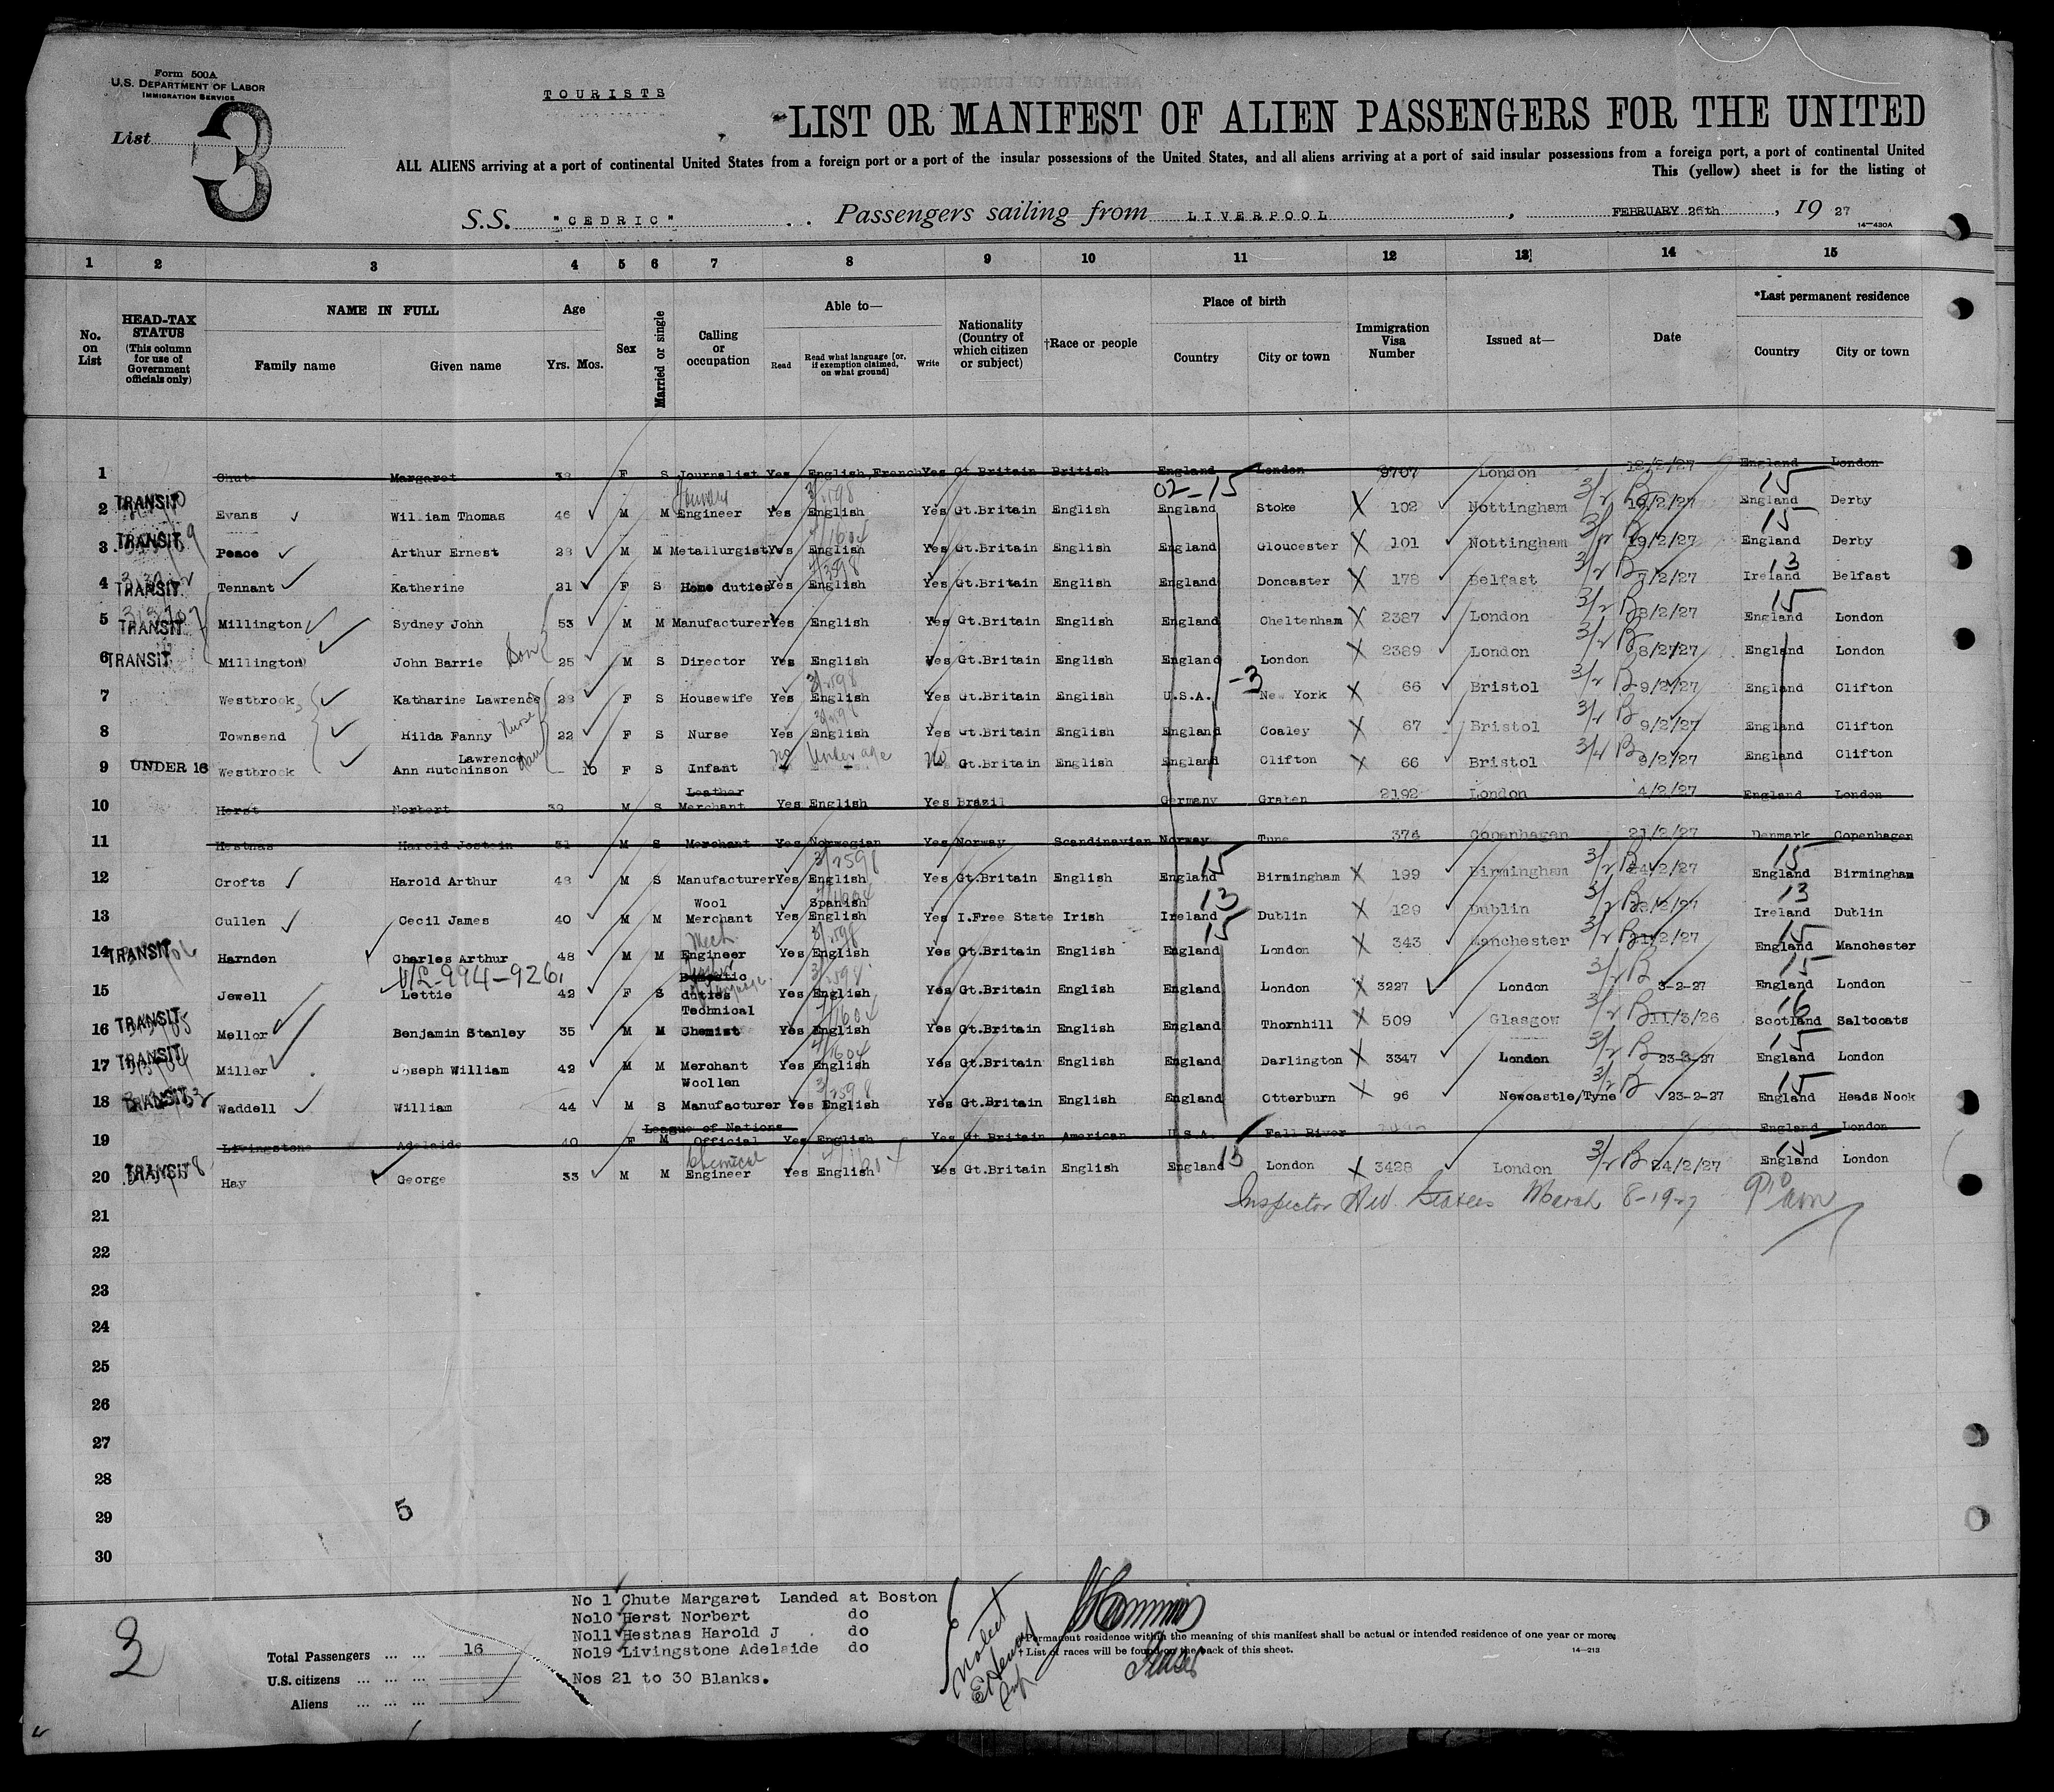 Form 500A
U.S. DEPARTMENT OF LABOR
IMMIGRATION SERVICE
List 3
TOURISTS
LIST OR MANIFEST OF ALIEN PASSENGERS FOR THE UNITED
ALL ALIENS arriving at a port of continental United States from a foreign port or a port of the insular possessions of the United States, and all aliens arriving at a port of said insular possessions from a foreign port, a port of continental United
This (yellow) sheet is for the listing of
S.S. "CEDRIC" Passengers sailing from LIVERPOOL, FEBRUARY 26th, 19 27
14—430A
1 2 3 4 5 6 7 8 9 10 11 12 13 14 15
No. on List
HEAD-TAX STATUS (This column for use of Government officials only)
NAME IN FULL
Family name Given name
Age
Yrs. Mos.
Sex
Married or single
Calling or occupation
Able to—
Read Read what language [or, if exemption claimed, on what ground] Write
Nationality (Country of which citizen or subject)
†Race or people
Place of birth
Country City or town
Immigration Visa Number
Issued at—
Date
*Last permanent residence
Country City or town
1 Chute Margaret 38 F S Journalist Yes English,French Yes Gt.Britain British England London 9707 London 18/2/27 England London
02-15
2 TRANSIT Evans William Thomas 46 M M Engineer Yes English Yes Gt.Britain English England Stoke X 102 Nottingham 19/2/27 England 15 Derby
3 TRANSIT Peace Arthur Ernest 28 M M Metallurgist Yes English Yes Gt.Britain English England Gloucester X 101 Nottingham 19/2/27 England 15 Derby
4 TRANSIT Tennant Katherine 21 F S Home duties Yes English Yes Gt.Britain English England Doncaster X 178 Belfast 7/2/27 Ireland 13 Belfast
5 TRANSIT Millington Sydney John 53 M M Manufacturer Yes English Yes Gt.Britain English England Cheltenham X 2387 London 8/2/27 England 15 London
6 TRANSIT Millington John Barrie Son 25 M S Director Yes English Yes Gt.Britain English England London X 2389 London 8/2/27 England London
7 Westbrook Katharine Lawrence 28 F S Housewife Yes English Yes Gt.Britain English U.S.A. -3 New York X 66 Bristol 9/2/27 England Clifton
8 Townsend Hilda Fanny Nurse 22 F S Nurse Yes English Yes Gt.Britain English England Coaley X 67 Bristol 9/2/27 England Clifton
9 UNDER 16 Westbrook Ann Hutchinson Lawrence 10 F S Infant no Under age no Gt.Britain English England Clifton X 66 Bristol 9/2/27 England Clifton
10 Herst Norbert 39 M S Leather Merchant Yes English Yes Brazil Germany Graben 2192 London 4/2/27 England London
11 Hestnas Harold Jostein 31 M S Merchant Yes Norwegian Yes Norway Scandinavian Norway Tune 376 Copenhagen 21/2/27 Denmark Copenhagen
12 Crofts Harold Arthur 48 M S Manufacturer Yes English Yes Gt.Britain English England 15 Birmingham X 199 Birmingham 24/2/27 England 15 Birmingham
13 Cullen Cecil James 40 M M Wool Merchant Yes Spanish English Yes I.Free State Irish Ireland 13 Dublin X 129 Dublin Ireland 13 Dublin
14 TRANSIT Harnden Charles Arthur 48 M M Mech. Engineer Yes English Yes Gt.Britain English England 15 London X 343 Manchester 21/2/27 England 15 Manchester
V/L-994-926
15 Jewell Lettie 42 F S Domestic duties Yes English Yes Gt.Britain English England London X 3227 London 3-2-27 England 15 London
16 TRANSIT Mellor Benjamin Stanley 35 M M Technical Chemist Yes English Yes Gt.Britain English England Thornhill X 509 Glasgow 11/3/26 Scotland 16 Saltcoats
17 TRANSIT Miller Joseph William 42 M M Merchant Yes English Yes Gt.Britain English England Darlington X 3347 London 23-2-27 England 15 London
18 TRANSIT Waddell William 44 M S Woollen Manufacturer Yes English Yes Gt.Britain English England Otterburn X 96 Newcastle/Tyne 23-2-27 England 15 Heads Nook
19 Livingstone Adelaide 40 F M League of Nations Official Yes English Yes Gt.Britain American U.S.A. Fall River England London
20 TRANSIT Hay George 33 M M Chemical Engineer Yes English Yes Gt.Britain English England 15 London X 3428 London 24/2/27 England 15 London
21 Inspector March 8-1927 9:10 am
22
23
24
25
26
27
28
29
30
5
3
Total Passengers ... ... 16
U.S. citizens ... ... ...
Aliens ... ... ...
No 1 Chute Margaret Landed at Boston
No10 Herst Norbert do
No11 Hestnas Harold J do
No19 Livingstone Adelaide do
Nos 21 to 30 Blanks.
*Permanent residence within the meaning of this manifest shall be actual or intended residence of one year or more.
†List of races will be found on the back of this sheet.
14—213